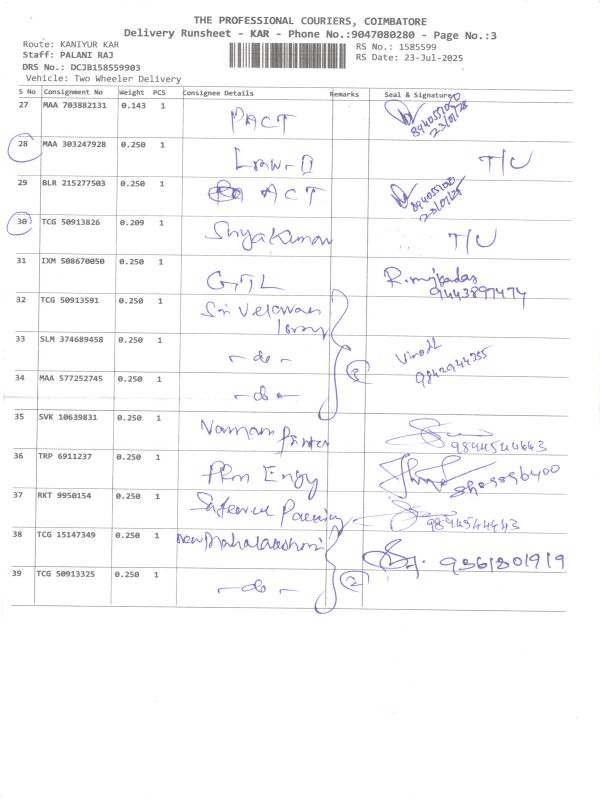 THE PROFESSIONAL COURIERS, COIMBATORE
Delivery Runsheet - KAR - Phone No.:9047080280 - Page No.:3
Route: KANIYUR KAR
RS No.: 1585599
Staff: PALANI RAJ
RS Date: 23-Jul-2025
DRS No.: DCJB158559903
Vehicle: Two Wheeler Delivery
S No Consignment No Weight PCS Consignee Details Remarks Seal & Signature
27 MAA 703882131 0.143 1 PACT 23/07/25
28 MAA 303247928 0.250 1 T/U
29 BLR 215277503 0.250 1 ACT 23/07/25
30 TCG 50913826 0.209 1 T/U
31 IXM 508670050 0.250 1 GTL 9443897474
32 TCG 50913591 0.250 1 Sri Velavan
33 SLM 374689458 0.250 1 - do - 3
34 MAA 577252745 0.250 1 - do -
35 SVK 10639831 0.250 1 Printer 9894544643
36 TRP 6911237 0.250 1 Engy
37 RKT 9950154 0.250 1 9894544443
38 TCG 15147349 0.250 1 New Mahalakshmi 9361801919
39 TCG 50913325 0.250 1 - do - 2